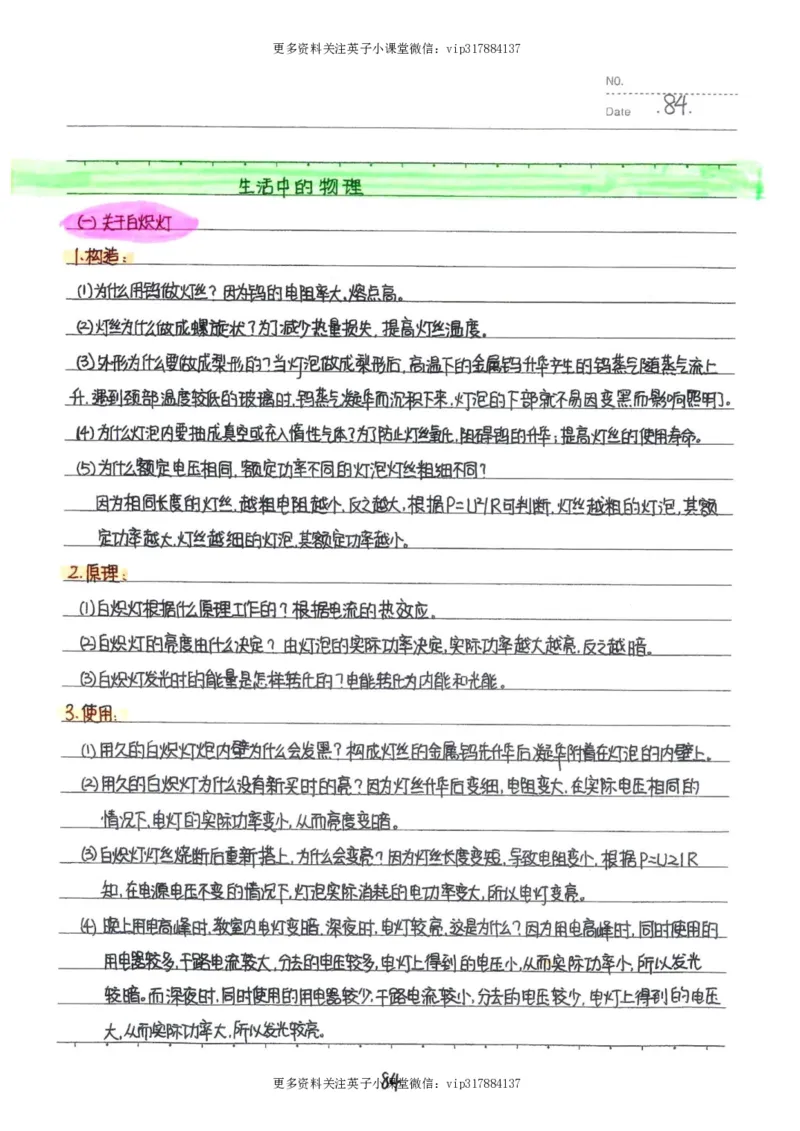 更多资料关注英子小课堂微信：vip317884137
NO.
Date .84.
生活中的物理
(一)关于白炽灯
1.构造：
(1)为什么用钨做灯丝？因为钨的电阻率大,熔点高。
(2)灯丝为什么做成螺旋状？为了减少热量损失,提高灯丝温度。
(3)外形为什么要做成梨形的？当灯泡做成梨形后,高温下的金属钨升华产生的钨蒸气随蒸气流上
升,遇到颈部温度较低的玻璃时,钨蒸气凝华而沉积下来,灯泡的下部就不易因变黑而影响照明了。
(4)为什么灯泡内要抽成真空或充入惰性气体？为了防止灯丝氧化,阻碍钨的升华；提高灯丝的使用寿命。
(5)为什么额定电压相同,额定功率不同的灯泡灯丝粗细不同？
因为相同长度的灯丝,越粗电阻越小,反之越大,根据P=U²/R可判断,灯丝越粗的灯泡,其额
定功率越大,灯丝越细的灯泡,其额定功率越小。
2.原理：
(1)白炽灯根据什么原理工作的？根据电流的热效应。
(2)白炽灯的亮度由什么决定？由灯泡的实际功率决定,实际功率越大越亮,反之越暗。
(3)白炽灯发光时的能量是怎样转化的？电能转化为内能和光能。
3.使用：
(1)用久的白炽灯灯炮内壁为什么会发黑？构成灯丝的金属钨先升华后凝华附着在灯泡的内壁上。
(2)用久的白炽灯为什么没有新买时的亮？因为灯丝升华后变细,电阻变大,在实际电压相同的
情况下,电灯的实际功率变小,从而亮度变暗。
(3)白炽灯灯丝烧断后重新搭上,为什么会变亮？因为灯丝长度变短,导致电阻变小,根据P=U2IR
知,在电源电压不变的情况下,灯泡实际消耗的电功率变大,所以电灯变亮。
(4)晚上用电高峰时,教室内电灯变暗,深夜时,电灯较亮,这是为什么？因为用电高峰时,同时使用的
用电器较多,干路电流较大,分去的电压较多,电灯上得到的电压小,从而实际功率小,所以发光
较暗。而深夜时,同时使用的用电器较少,干路电流较小,分去的电压较少,电灯上得到的电压
大,从而实际功率大,所以发光较亮。
84
更多资料关注英子小课堂微信：vip317884137